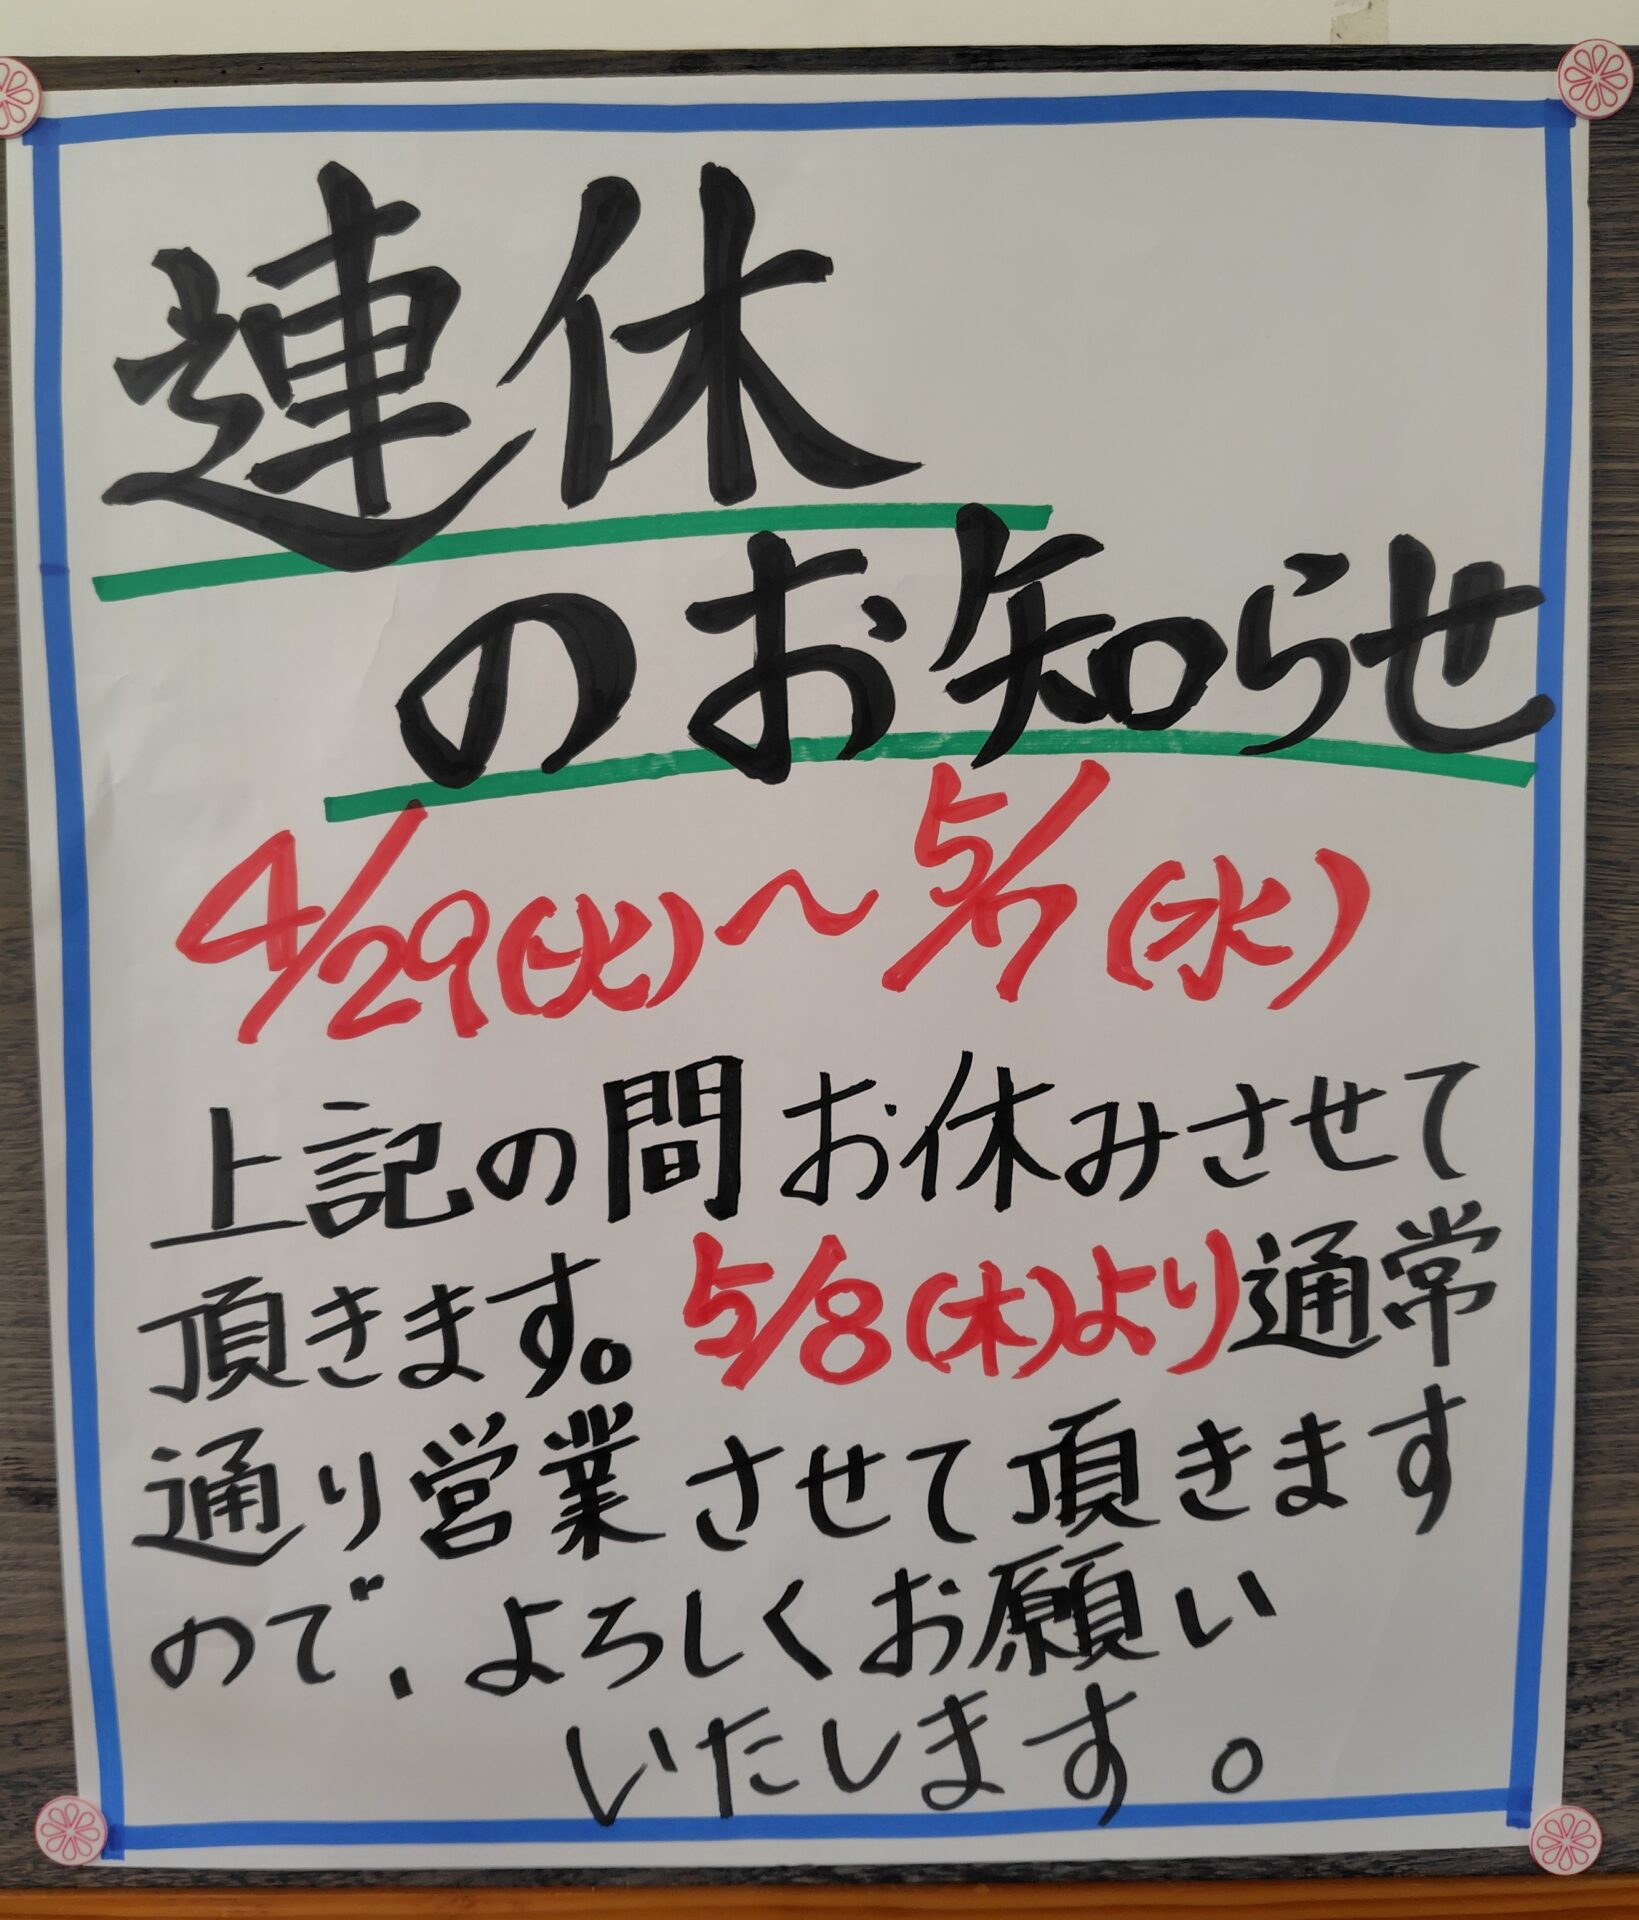 連休
のお知らせ
4/29(火)〜5/7(水)
上記の間お休みさせて
頂きます。5/8(木)より通常
通り営業させて頂きます
ので、よろしくお願い
いたします。